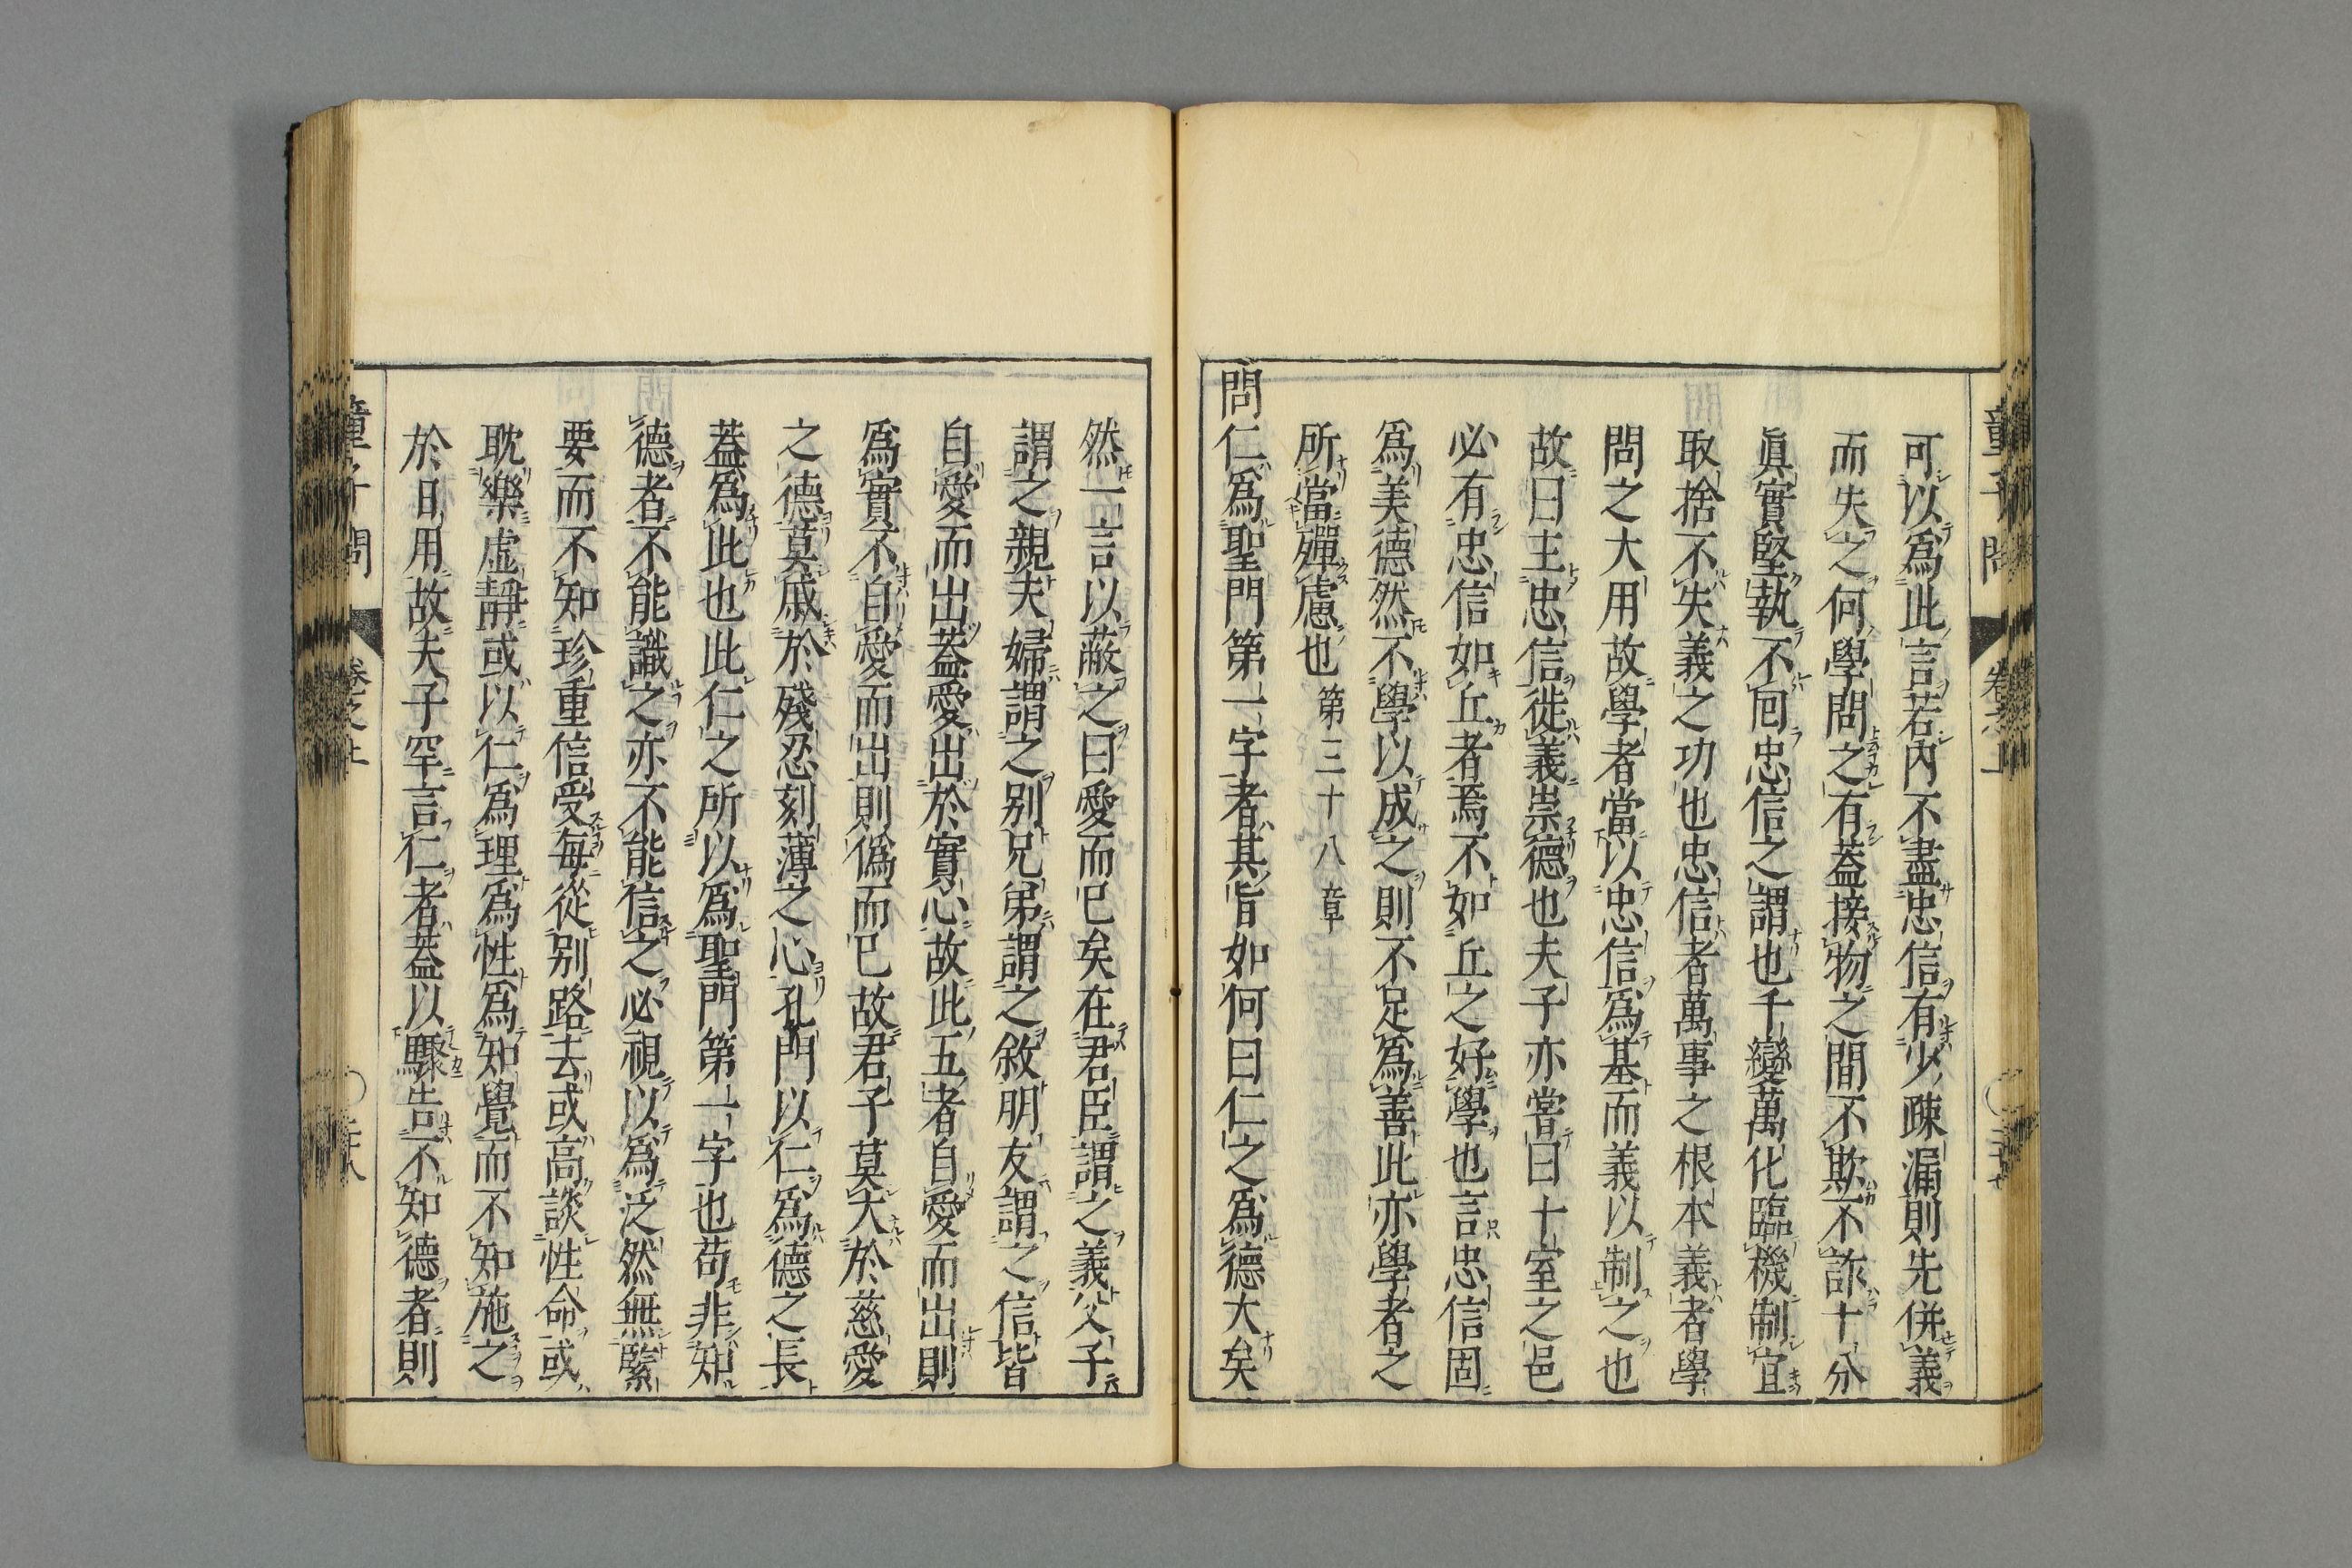 可以爲此言若内不盡忠信有少疎漏則先併義
而失之何學問之有葢接物之間不欺不詐十分
眞實堅執不回忠信之謂也千變萬化臨機制宜
取捨不失義之功也忠信者萬事之根本義者學
問之大用故學者當以忠信爲基而義以制之也
故曰主忠信徙義崇德也夫子亦嘗曰十室之邑
必有忠信如丘者焉不如丘之好學也言忠信固
爲美德然不學以成之則不足爲善此亦學者之
所當殫慮也 第三十八章
問仁爲聖門第一字者其旨如何曰仁之爲德大矣
然一言以蔽之曰愛而已矣在君臣謂之義父子
謂之親夫婦謂之别兄弟謂之敘朋友謂之信皆
自愛而出葢愛出於實心故此五者自愛而出則
爲實不自愛而出則僞而已故君子莫大於慈愛
之德莫戚於殘忍刻薄之心孔門以仁爲德之長
葢爲此也此仁之所以爲聖門第一字也苟非知
德者不能識之亦不能信之必視以爲泛然無緊
要而不知珍重信受每從别路去或高談性命或
耽樂虛靜或以仁爲理爲性爲知覺而不知施之
於日用故夫子罕言仁者葢以驟告不知德者則
童子問 卷之上